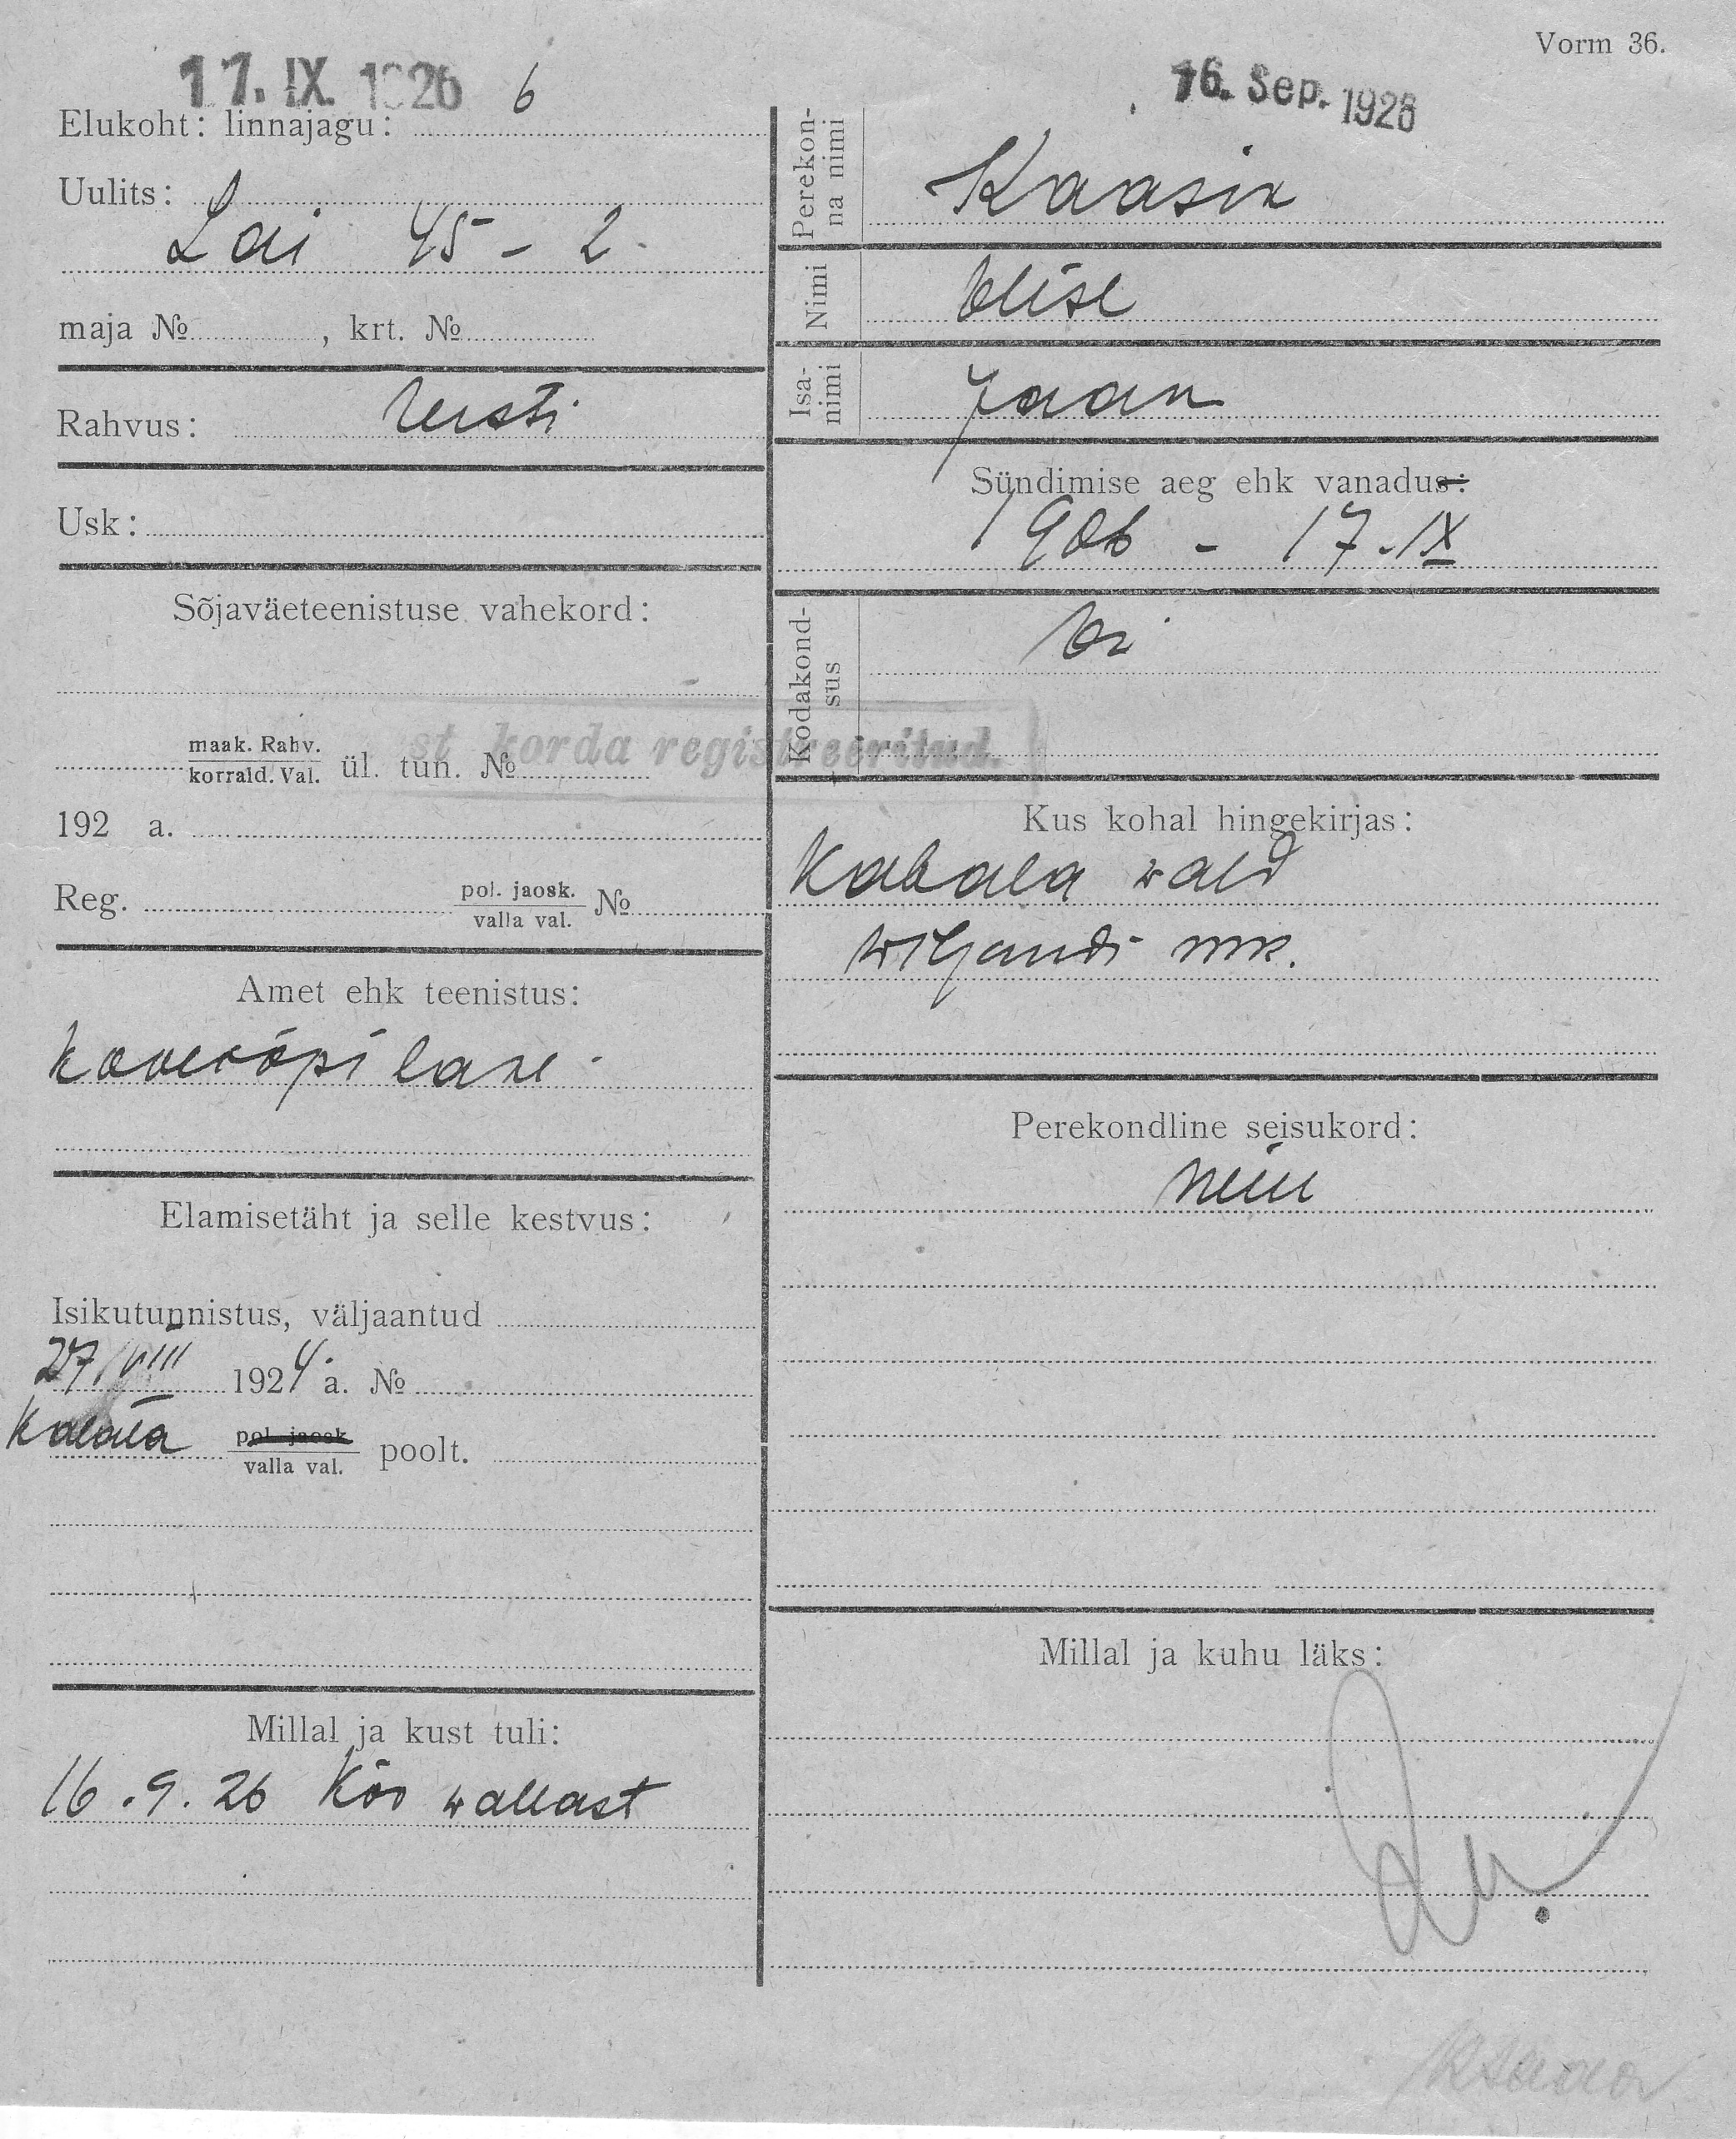 Vorm 36.
17. IX. 1926 6
Elukoht: linnajagu:
Uulits:
Lai 45 - 2.
maja № , krt. №
Rahvus: Eesti
Usk:
Sõjaväeteenistuse vahekord:
maak. Rahv.
korrald. Val. ül. tun. №
st korda registreeritud.
192 a.
Reg. pol. jaosk.
valla val. №
Amet ehk teenistus:
kooliõpilane
Elamisetäht ja selle kestvus:
Isikutunnistus, väljaantud
27/VIII 1924 a. №
Kabala pol. jaosk.
valla val. poolt.
Millal ja kust tuli:
16.9.26 Kõo wallast
16. Sep. 1926
Perekon-
na nimi Kaasik
Nimi Elise
Isa-
nimi Jaan
Sündimise aeg ehk vanadus:
1906 - 17.IX
Kodakond-
sus Ee
Kus kohal hingekirjas:
Kabala wald
Wiljandi mk.
Perekondline seisukord:
neiu
Millal ja kuhu läks: